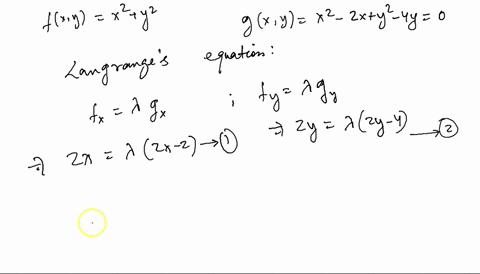 f(x,y) = x² + y² g(x,y) = x² - 2x + y² - 4y = 0
Langrange's equation:
fx = λ gx ; fy = λ gy
⇒ 2x = λ(2x-2) → ① ⇒ 2y = λ(2y-4) → ②